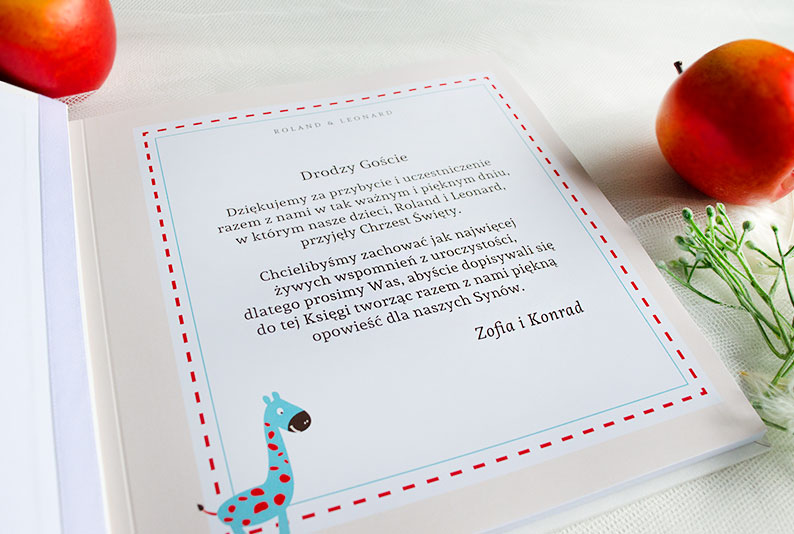 ROLAND & LEONARD
Drodzy Goście
Dziękujemy za przybycie i uczestniczenie
razem z nami w tak ważnym i pięknym dniu,
w którym nasze dzieci, Roland i Leonard,
przyjęły Chrzest Święty.
Chcielibyśmy zachować jak najwięcej
żywych wspomnień z uroczystości,
dlatego prosimy Was, abyście dopisywali się
do tej Księgi tworząc razem z nami piękną
opowieść dla naszych Synów.
Zofia i Konrad